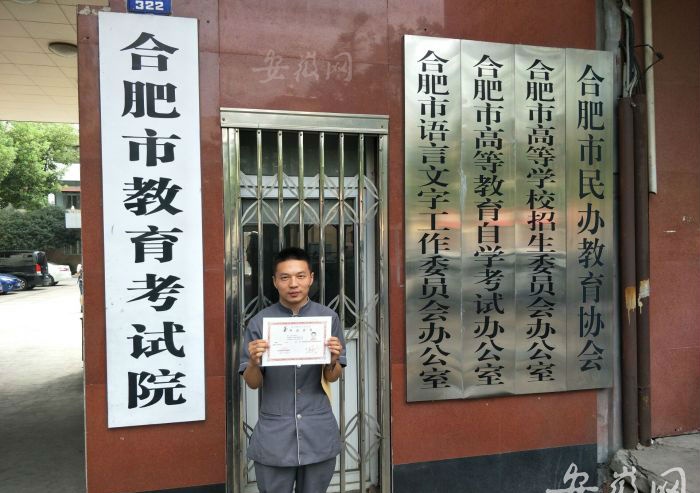 322
合肥市教育考试院
安徽网
合肥市语言文字工作委员会办公室
合肥市高等教育自学考试办公室
合肥市高等学校招生委员会办公室
合肥市民办教育协会
安徽网